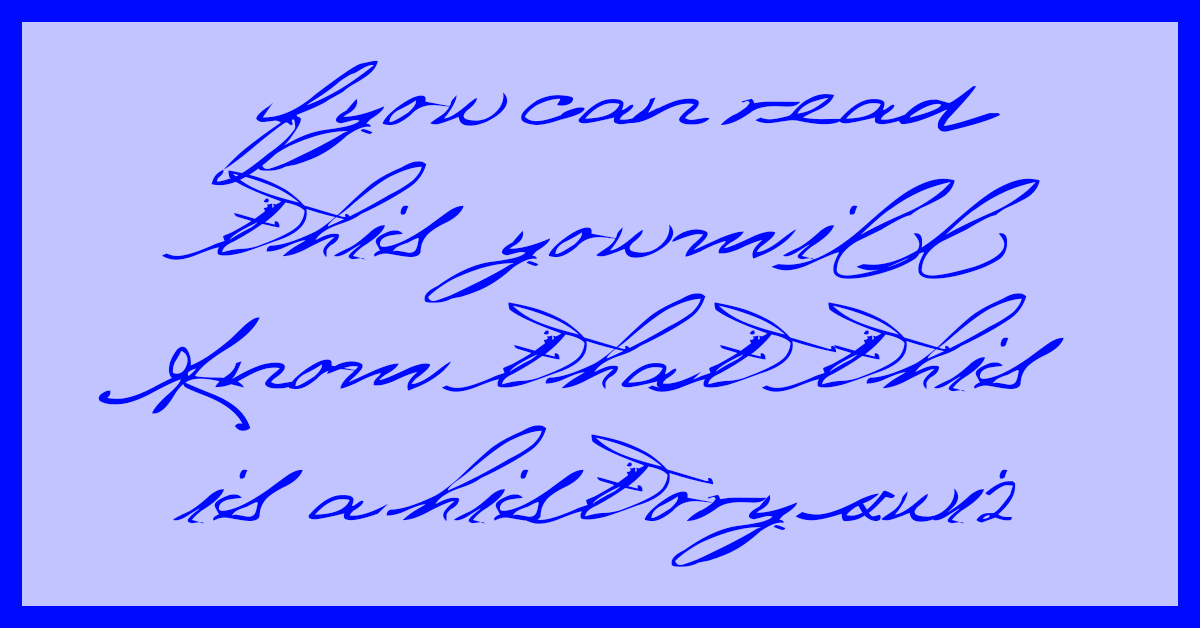 If you can read
this you will
know that this
is a history quiz